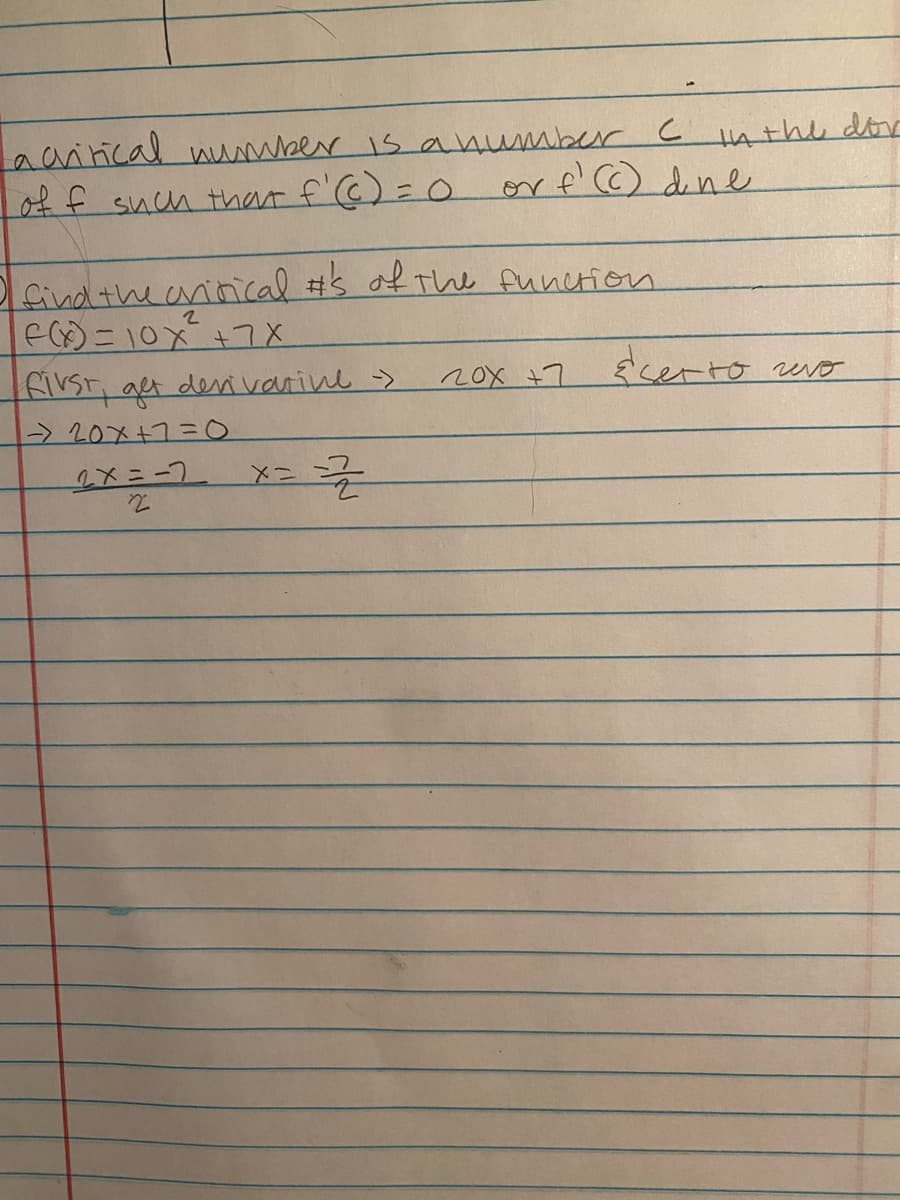 a critical number is a number c in the dom
of f such that f'(c) = 0 or f'(c) dne
find the critical #'s of the function
f(x) = 10x² + 7x
first, get derivative → 20x + 7 & set to zero
→ 20x + 7 = 0
2x = -7 x = -7
2 2